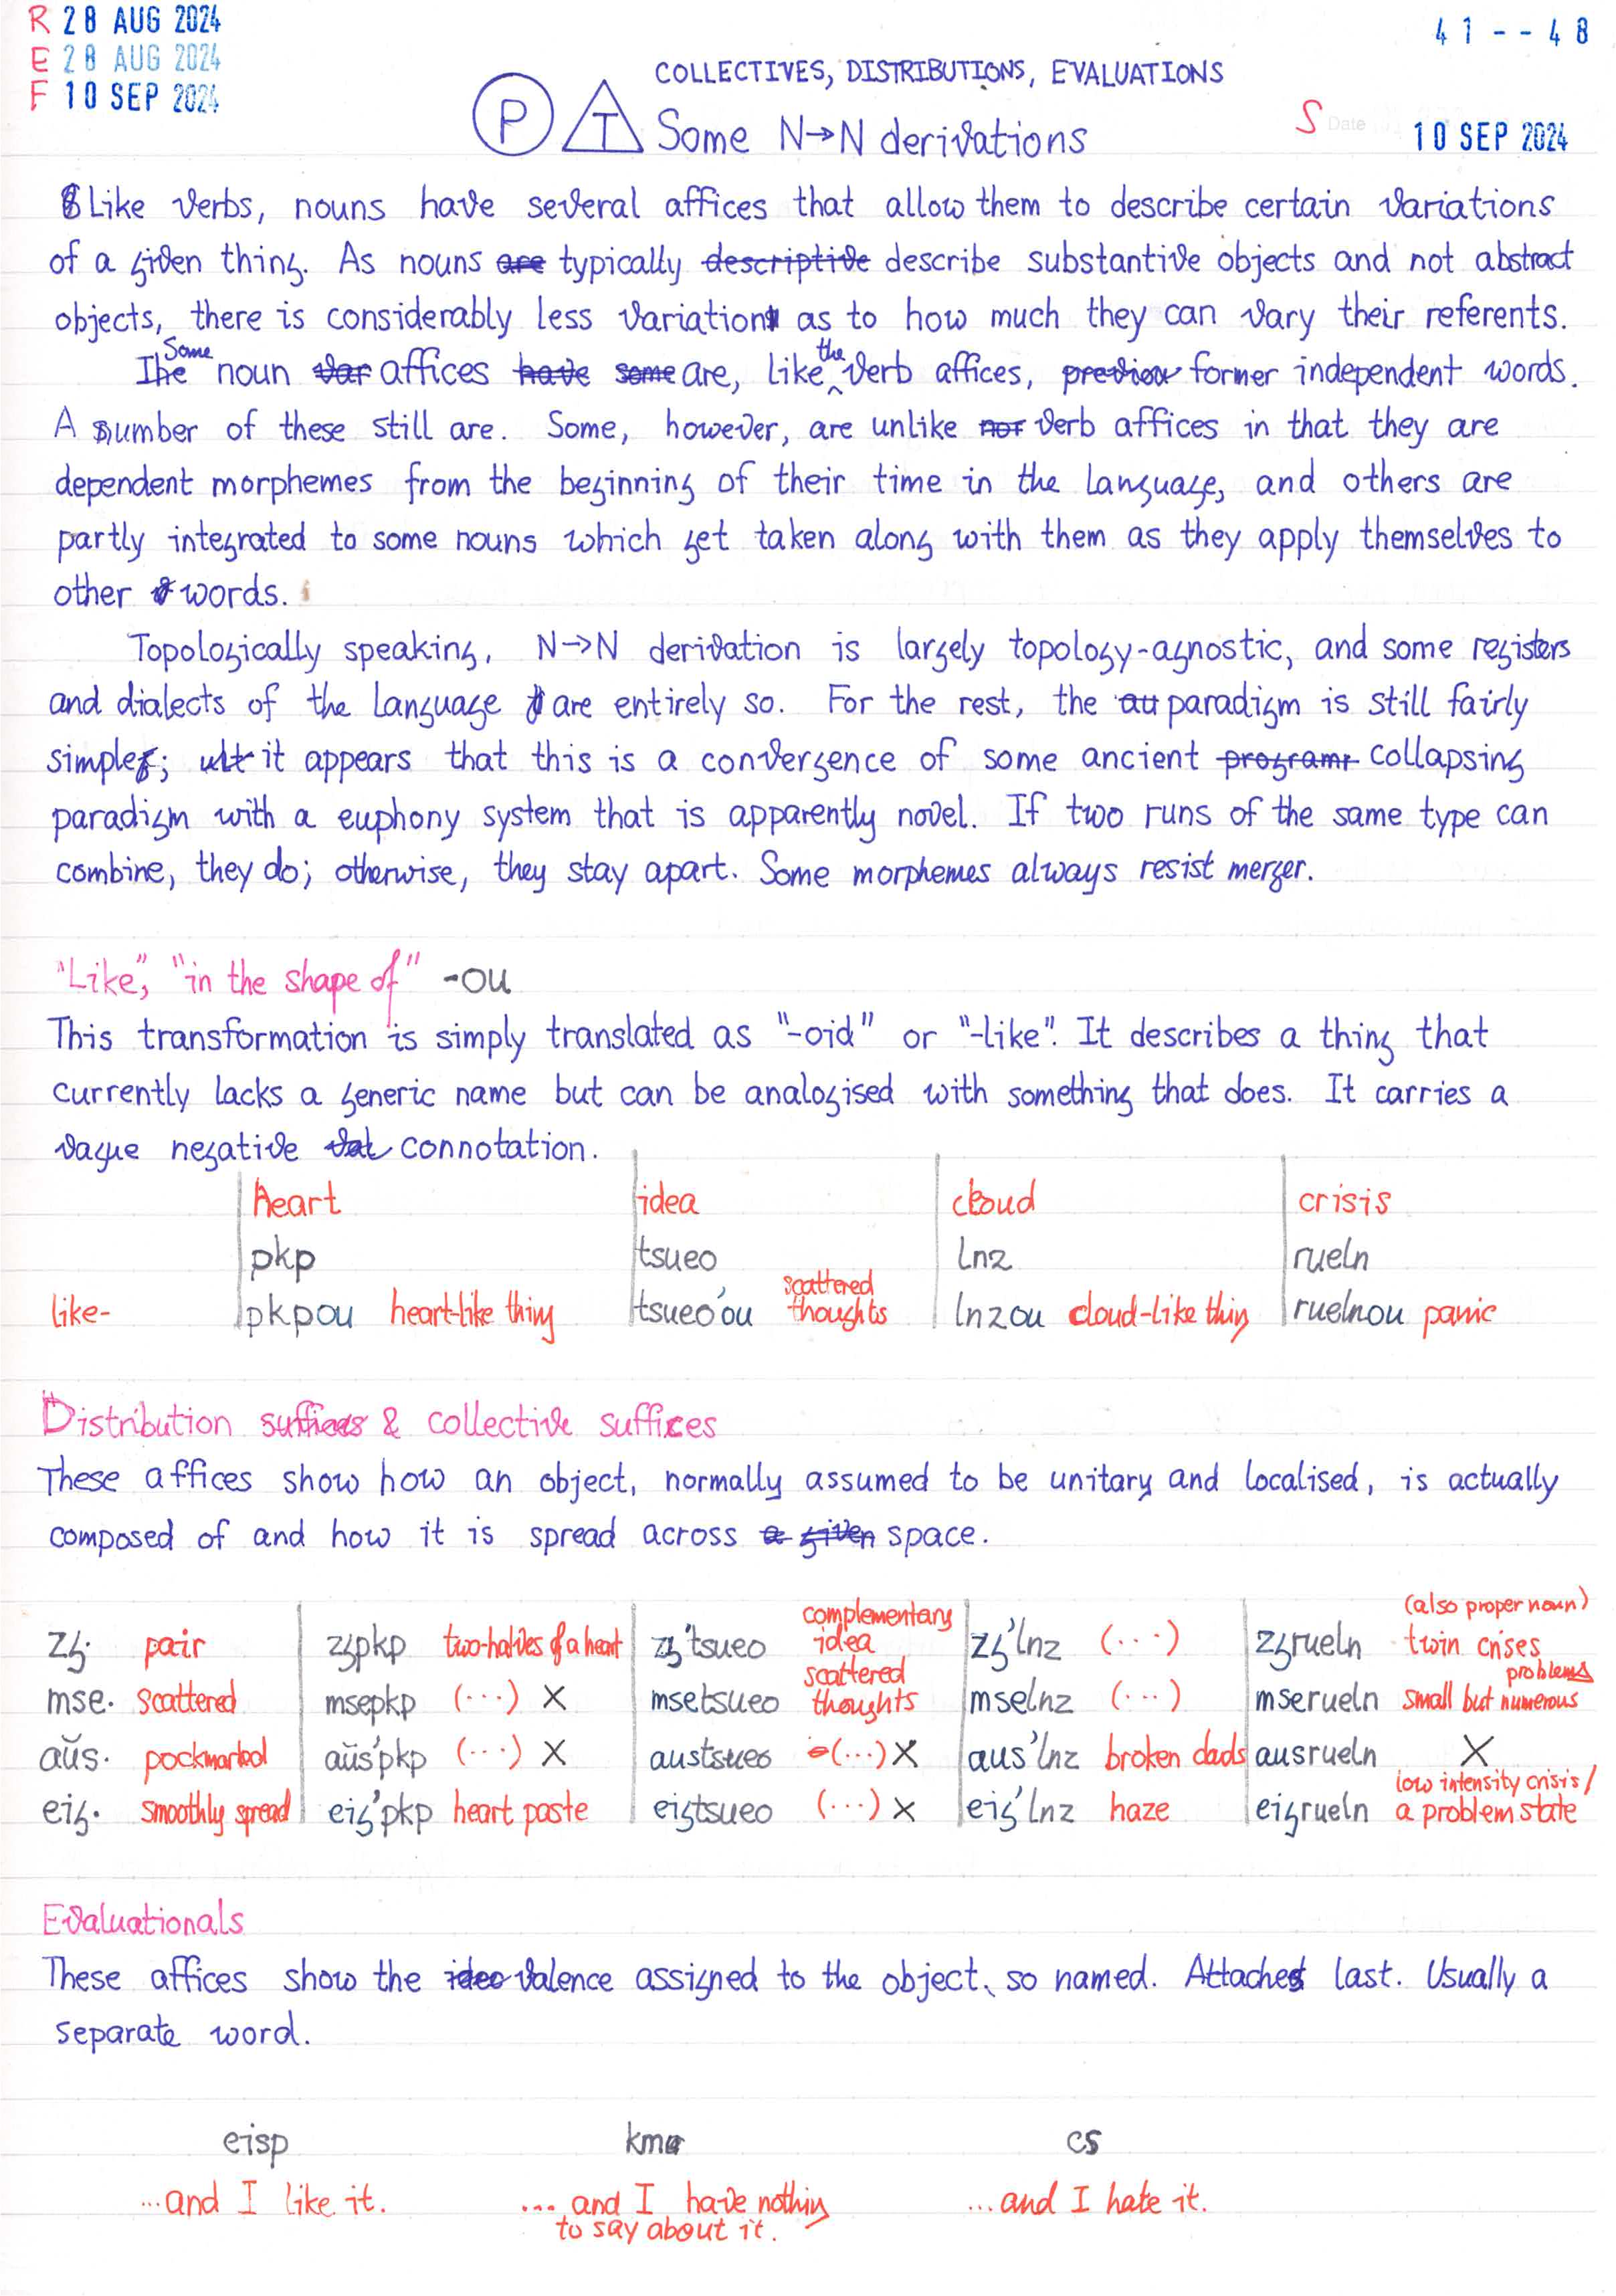 R 28 AUG 2024
E 28 AUG 2024
F 10 SEP 2024
41--48
COLLECTIVES, DISTRIBUTIONS, EVALUATIONS
P T Some N→N derivations
S Date 10 SEP 2024
Like verbs, nouns have several affices that allow them to describe certain variations
of a given thing. As nouns are typically descriptive describe substantive objects and not abstract
objects, there is considerably less variation as to how much they can vary their referents.
Some
the
The noun var affices have some are, like verb affices, previou former independent words.
A number of these still are. Some, however, are unlike nor verb affices in that they are
dependent morphemes from the beginning of their time in the language, and others are
partly integrated to some nouns which get taken along with them as they apply themselves to
other words.
Topologically speaking, N→N derivation is largely topology-agnostic, and some registers
and dialects of the language are entirely so. For the rest, the au paradigm is still fairly
simple; ult it appears that this is a convergence of some ancient programr collapsing
paradigm with a euphony system that is apparently novel. If two runs of the same type can
combine, they do; otherwise, they stay apart. Some morphemes always resist merger.
"Like", "in the shape of" -ou
This transformation is simply translated as "-oid" or "-like". It describes a thing that
currently lacks a generic name but can be analogised with something that does. It carries a
vague negative connotation.
heart idea cloud crisis
pkp tsueo lnz rueln
like- pkpou heart-like thing tsueo'ou scattered thoughts lnzou cloud-like thing ruelnou panic
Distribution suffices & collective suffices
These affices show how an object, normally assumed to be unitary and localised, is actually
composed of and how it is spread across a given space.
zg· pair zgpkp two-halves of a heart zg'tsueo complementary idea zg'lnz (...) zgrueln (also proper noun) twin crises
mse· scattered msepkp (...) X msetsueo scattered thoughts mselnz (...) mserueln small but numerous problems
aŭs· pockmarked aŭs'pkp (...) X austsueo (...) X aus'lnz broken clouds ausrueln X
eig· smoothly spread eig'pkp heart paste eigtsueo (...) X eig'lnz haze eigrueln low intensity crisis/ a problem state
Evaluationals
These affices show the idea valence assigned to the object, so named. Attached last. Usually a
separate word.
eisp kma cs
...and I like it. ... and I have nothing ...and I hate it.
to say about it.